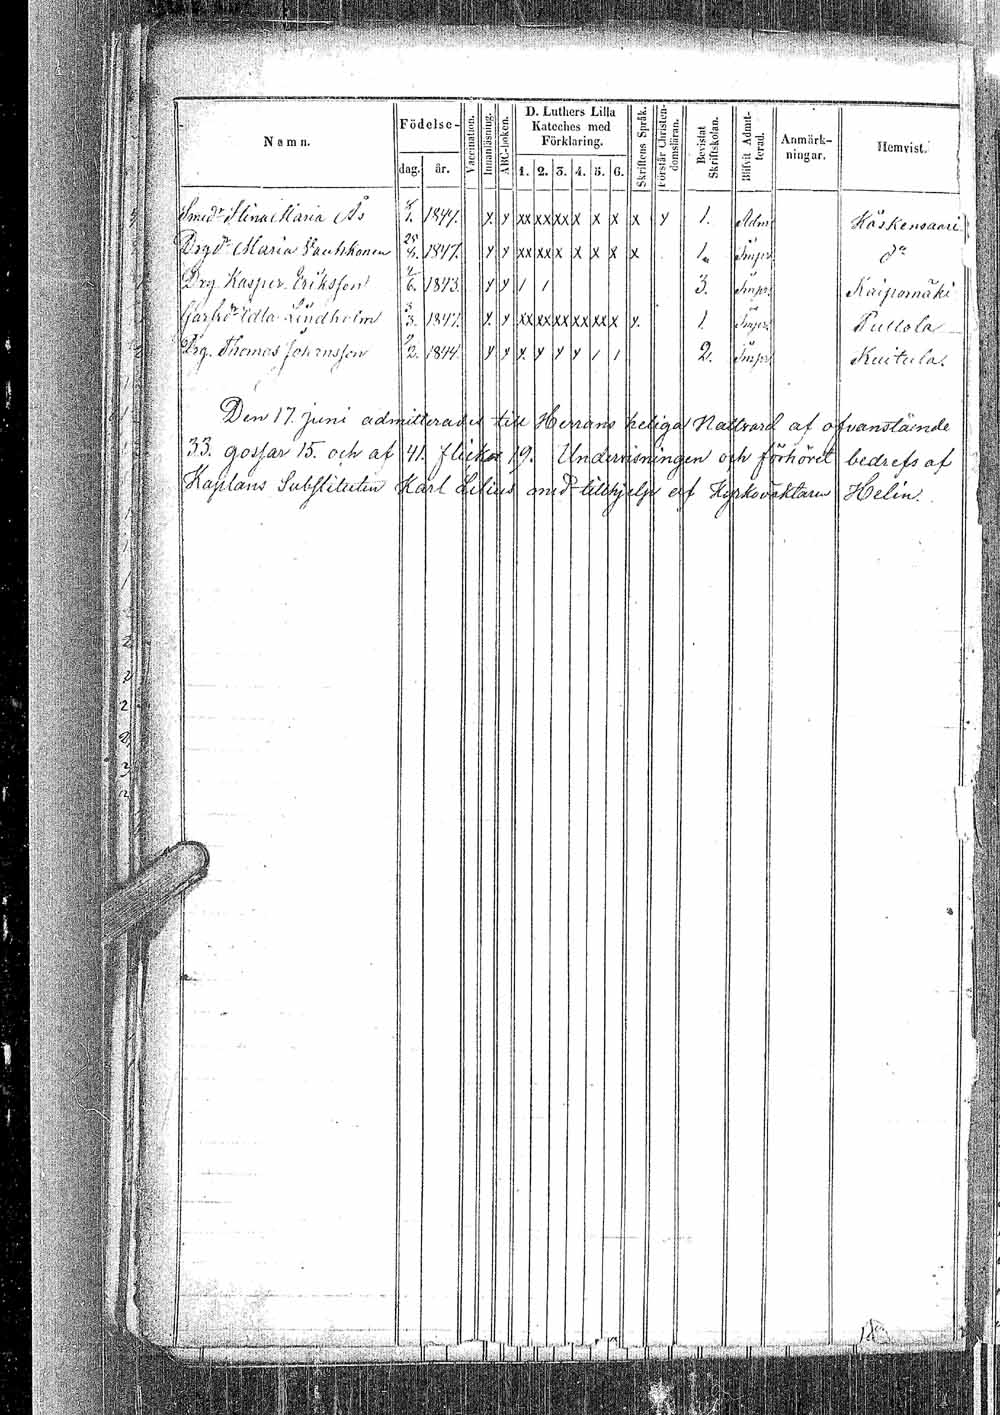 Namn.
Födelse-
dag. år.
Vaccination.
Innanläsning.
ABC-boken.
D. Luthers Lilla
Kateches med
Förklaring.
1. 2. 3. 4. 5. 6.
Skriftens Språk.
Förstår Christen-
domsläran.
Bevistat
Skriftskolan.
Blifvit Admit-
terad.
Anmärk-
ningar.
Hemvist.
Smedr Stina Maria Ås 1847. x x xx xx xx x x x x x 1. Adm
Drgdr Maria 1847. x x xx xx x x x x x 1. Impr. do
Drg. Kasper Eriksson 2/6. 1843. x x / / 3. Impr. Kaipomäki
Edla Lindholm 3/3. 1847. x. x xx xx xx xx xx x x. 1. Impr. Pullola
Drg. Thomas 9/2. 1844. x x x. x x x / / 2. Impr Kuitula.
Den 17. juni admitterades till Herrans heliga Nattvard af ofvanstående
33. gossar 15. och af 41. flickor 19. Undervisningen och förhöret bedrefs af
Kaplans Substituten Karl Lilius med tillhjelp af Kyrkoväktaren Helin.